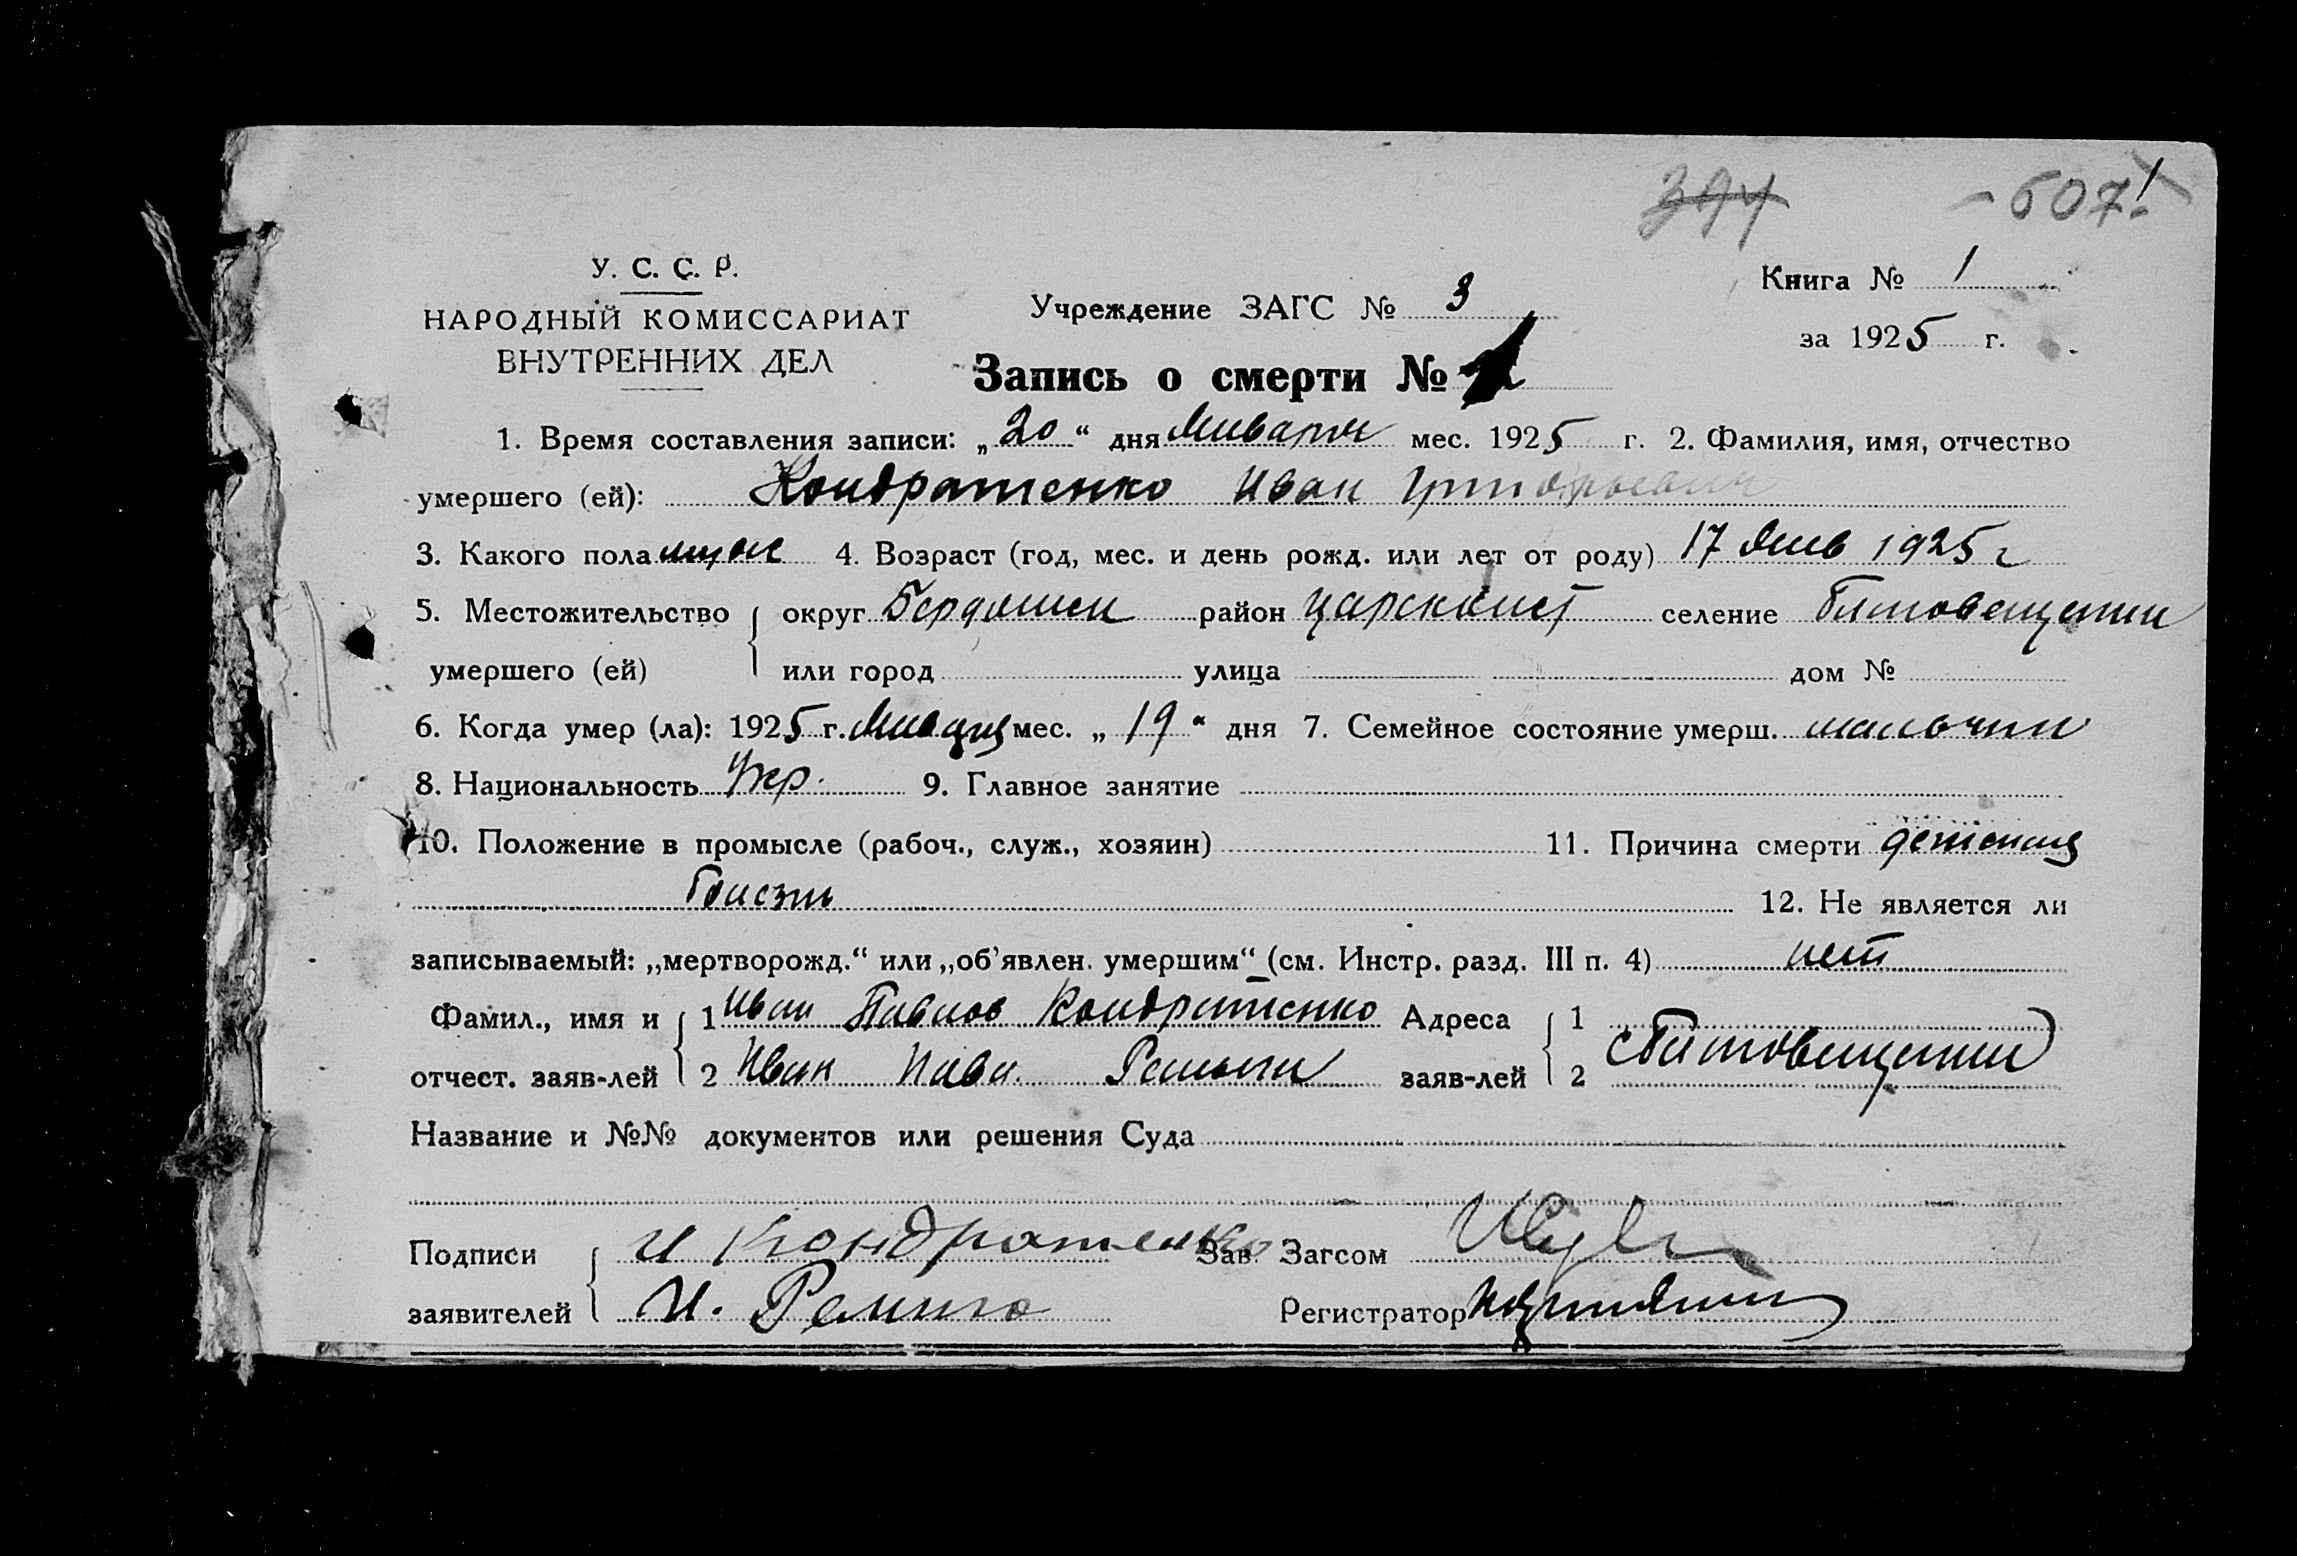 394 - 607!
У. С. С. Р.
НАРОДНЫЙ КОМИССАРИАТ
ВНУТРЕННИХ ДЕЛ
Учреждение ЗАГС № 3
Книга № 1
за 1925 г.
Запись о смерти № 1
1. Время составления записи: „20“ дня Января мес. 1925 г. 2. Фамилия, имя, отчество
умершего (ей): Кондратенко Иван Григорьевич
3. Какого пола муж 4. Возраст (год, мес. и день рожд. или лет от роду) 17 Янв 1925 г
5. Местожительство округ Бердянск район селение
умершего (ей) или город улица дом №
6. Когда умер (ла): 1925 г. Января мес. „19“ дня 7. Семейное состояние умерш. мальчик
8. Национальность Укр. 9. Главное занятие
10. Положение в промысле (рабоч., служ., хозяин) 11. Причина смерти детская
болезнь 12. Не является ли
записываемый: „мертворожд.“ или „об’явлен. умершим“ (см. Инстр. разд. III п. 4) нет
Фамил., имя и 1 Иван Павлов Кондратенко Адреса 1
отчест. заяв-лей 2 Иван Павл. заяв-лей 2
Название и №№ документов или решения Суда
Подписи И Кондратенко Зав. Загсом
заявителей И. Регистратор